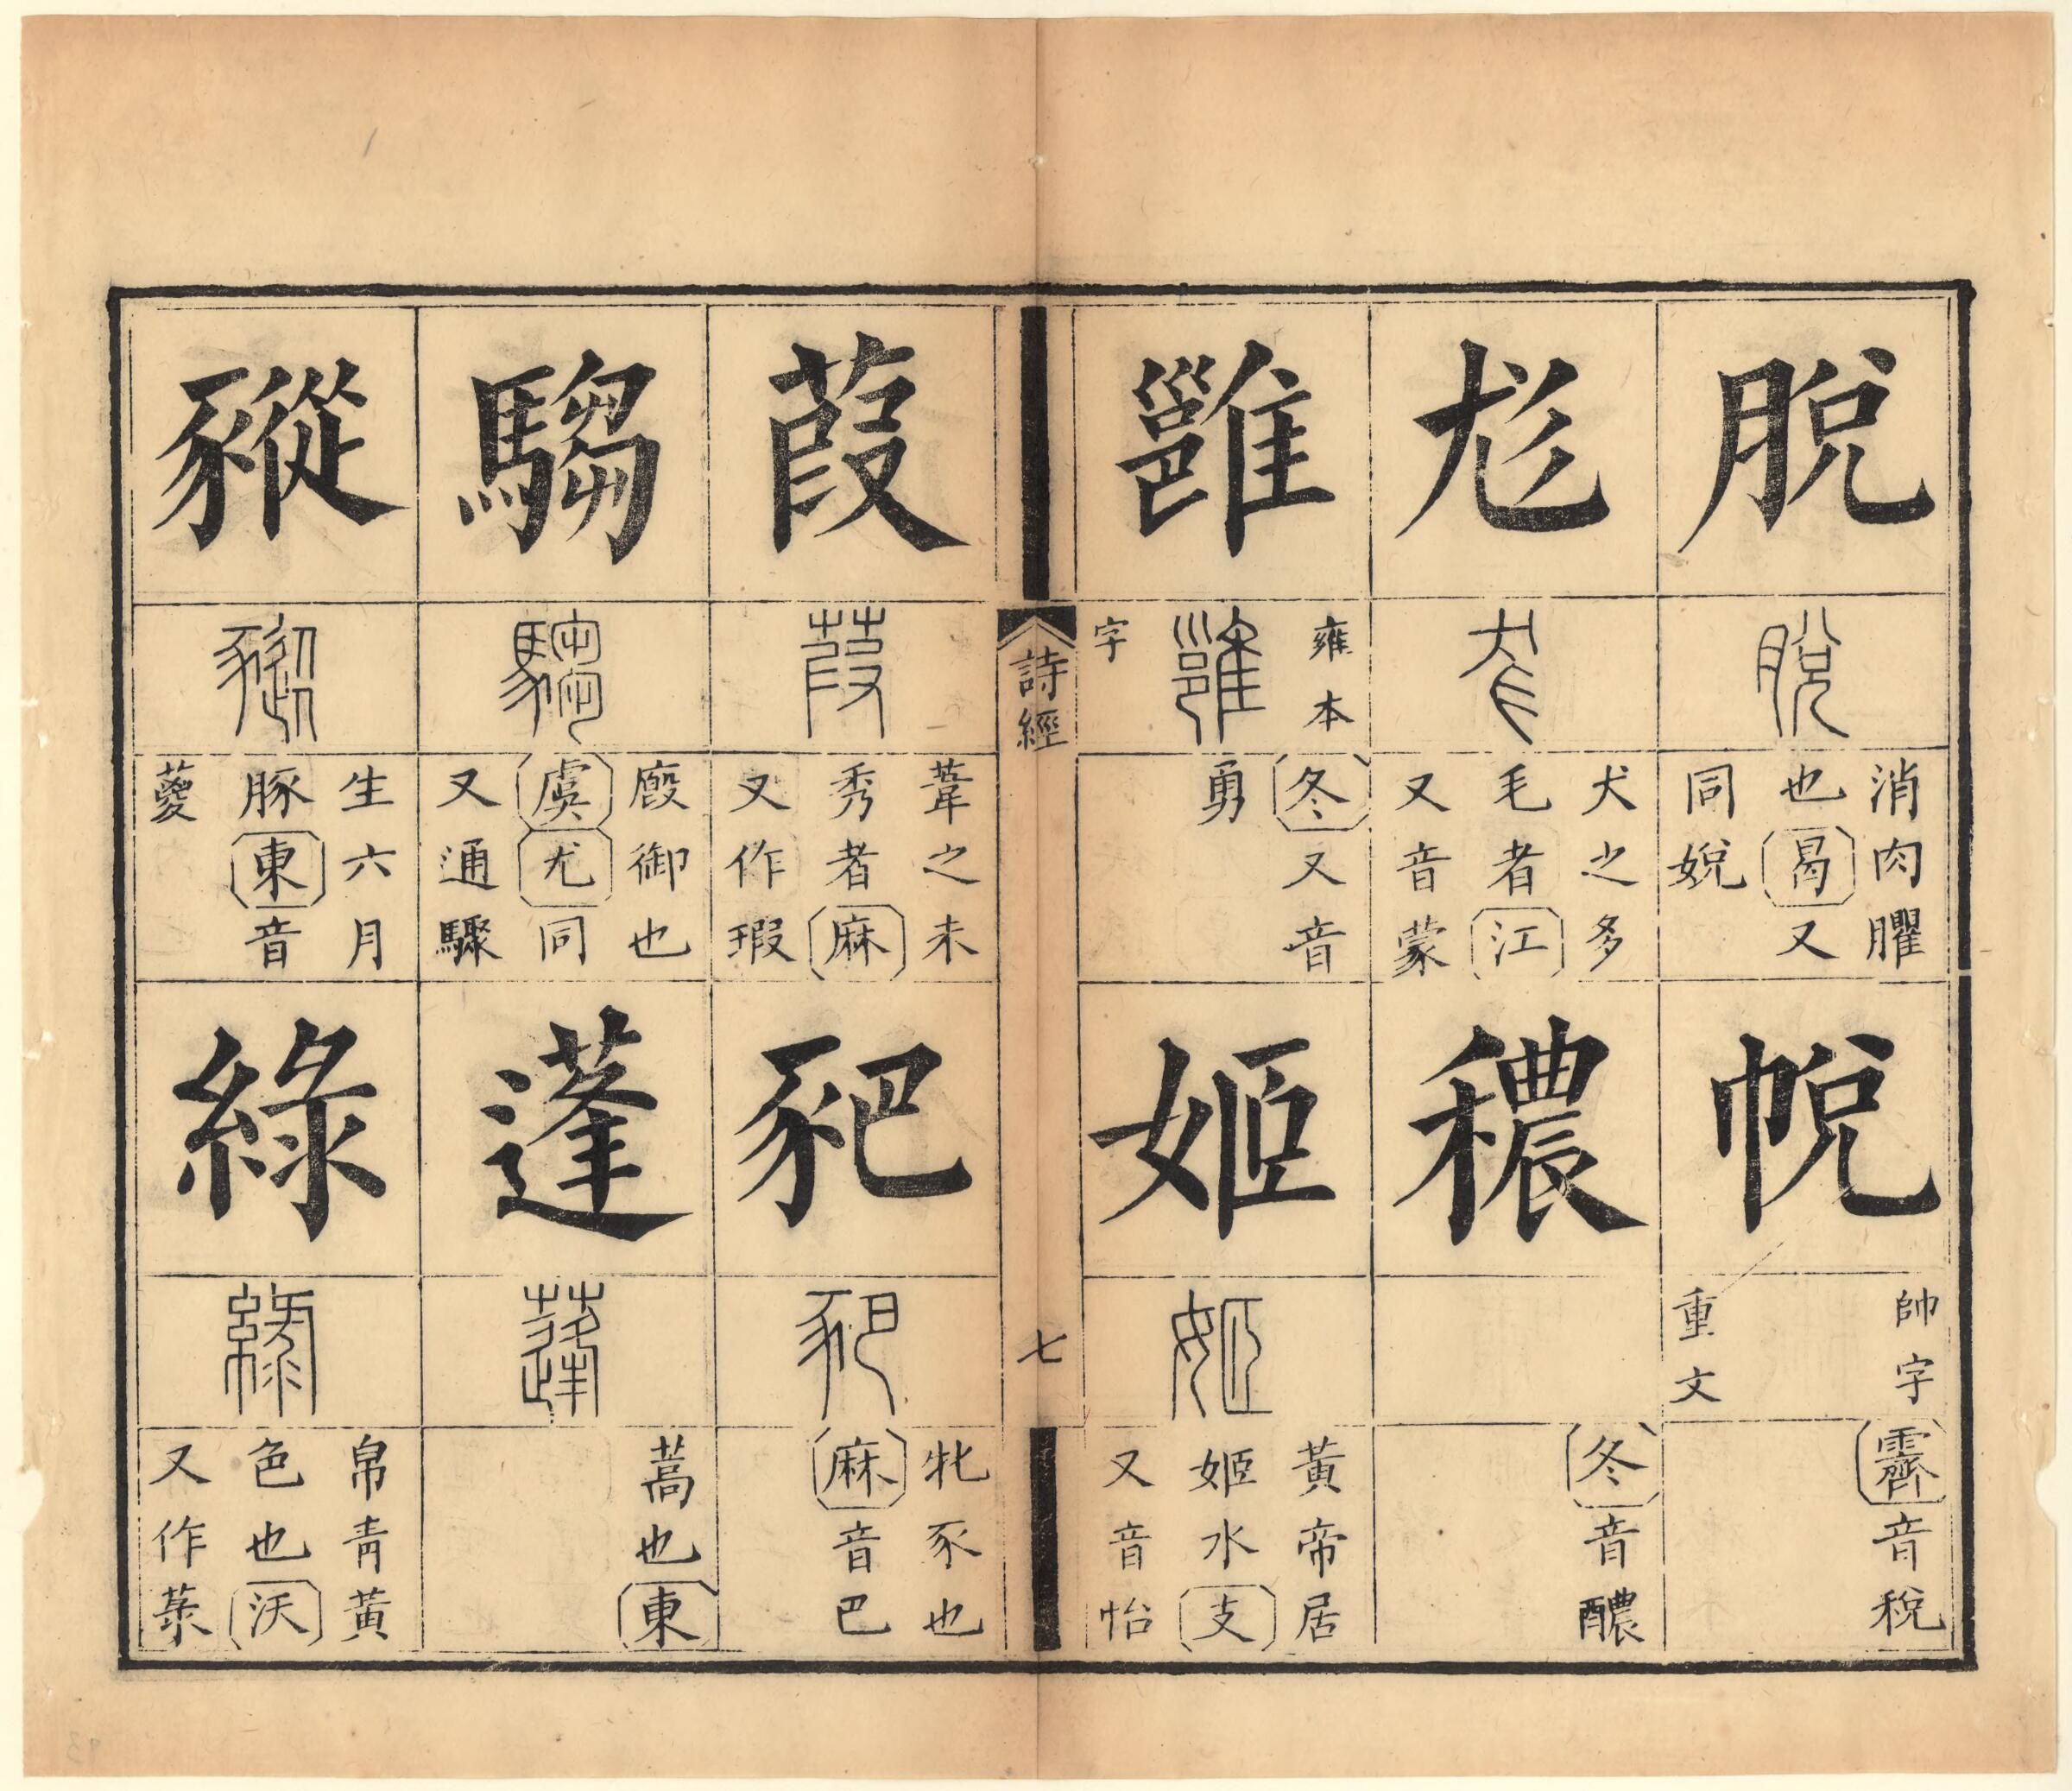 脫
脫
消肉臞
也曷又
同娧
帨
帥字
重文
霽音稅
尨
尨
犬之多
毛者江
又音蒙
穠
冬音醲
雝
雍本
雝
字
冬又音
勇
姬
姬
黃帝居
姬水支
又音怡
詩經
七
葭
葭
葦之未
秀者麻
又作瑕
豝
豝
牝豕也
麻音巴
騶
騶
廄御也
虞尤同
又通驟
蓬
蓬
蒿也東
豵
豵
生六月
豚東音
葼
綠
綠
帛青黃
色也沃
又作菉